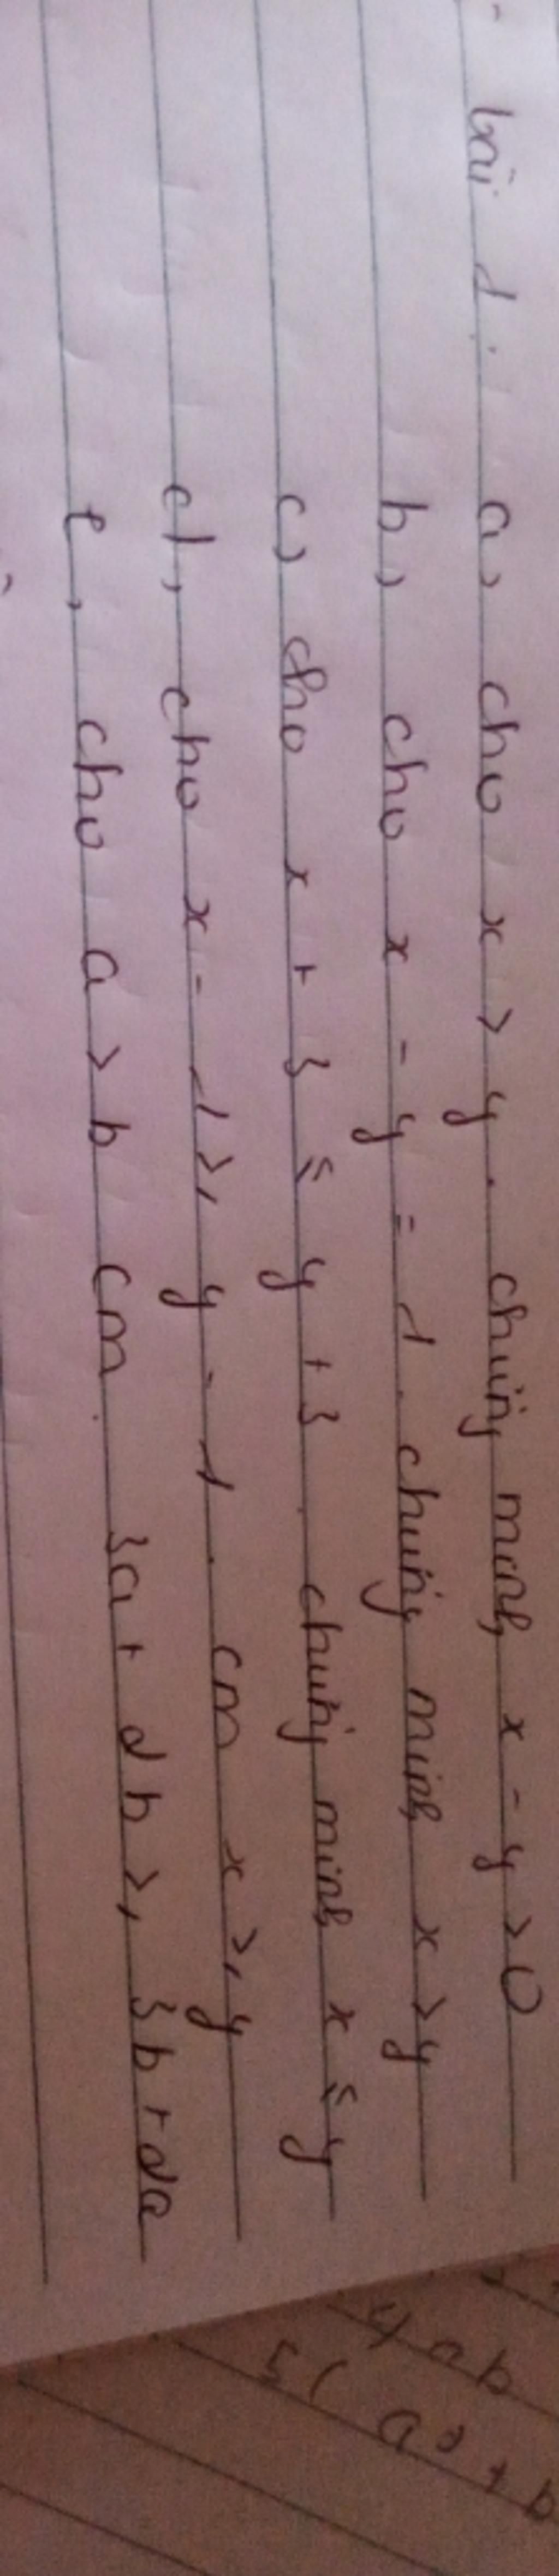 bài 1: a, cho x > y. chứng minh x - y > 0
b, cho x - y = 1. chứng minh x > y
c, cho x + 3 ≤ y + 3. chứng minh x ≤ y
d, cho x - 1 ≥ y - 1. cm x ≥ y
e, cho a > b cm. 3a + 2b ≥ 3b + 2a